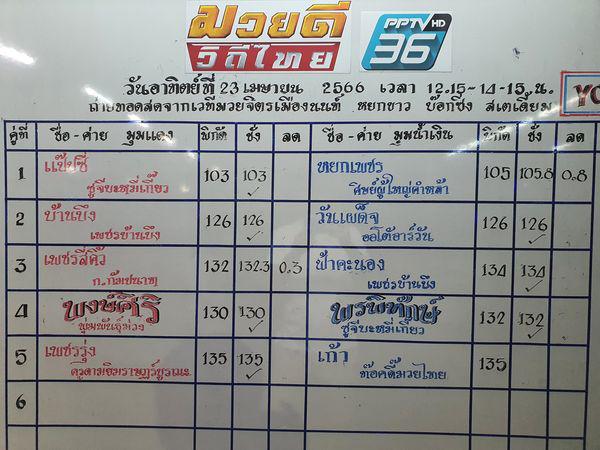 มวยดี
วิถีไทย
PPTV HD
36
วันอาทิตย์ที่ 23 เมษายน 2566 เวลา 12.15-14-15 น.
ถ่ายทอดสดจากเวทีมวยจิตรเมืองนนท์ หยกขาว บ๊อกซิ่ง สเตเดี้ยม
คู่ที่ ชื่อ-ค่าย มุมแดง พิกัด ชั่ง ลด ชื่อ-ค่าย มุมน้ำเงิน พิกัด ชั่ง ลด
1 แป๊บซี่ 103 103 หยกเพชร 105 105.8 0.8
ชูจีบะหมี่เกี๊ยว ศิษย์ผู้ใหญ่คำหล้า
2 บ้านบึง 126 126 วันเผด็จ 126 126
เพชรบ้านบึง ออโต้อาร์วัน
3 เพชรสี่คิ้ว 132 132.3 0.3 ฟ้าคะนอง 134 134
เพชรบ้านบึง
4 พงษ์ศิริ 130 130 พรพิทักษ์ 132 132
พุ่มพันธ์ม่วง ชูจีบะหมี่เกี๊ยว
5 เพชรรุ่ง 135 135 เก้า 135
ท๊อคดี้มวยไทย
6